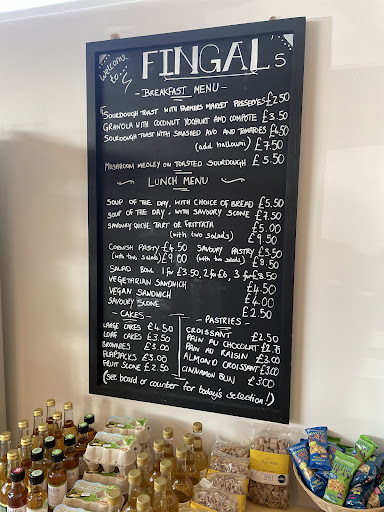 Welcome to...
FINGALS
- BREAKFAST MENU -
SOURDOUGH TOAST WITH FARMERS MARKET PRESERVES £2.50
GRANOLA WITH COCONUT YOGHURT AND COMPOTE £3.50
SOURDOUGH TOAST WITH SMASHED AVO AND TOMATOES £4.50
(add halloumi) £7.50
MUSHROOM MEDLEY ON TOASTED SOURDOUGH £5.50
LUNCH MENU
SOUP OF THE DAY, WITH CHOICE OF BREAD £5.50
SOUP OF THE DAY, WITH SAVOURY SCONE £7.50
SAVOURY QUICHE TART OR FRITTATA £5.00
(with two salads) £9.50
CORNISH PASTY £4.50 SAVOURY PASTRY £3.50
(with two salads) £9.00 (with two salads) £8.50
SALAD BOWL 1 for £3.50, 2 for £6, 3 for £8.50
VEGETARIAN SANDWICH £4.50
VEGAN SANDWICH £4.00
SAVOURY SCONE £2.50
- CAKES -
LARGE CAKES £4.50
LOAF CAKES £3.50
BROWNIES £3.00
FLAPJACKS £3.00
FRUIT SCONE £2.50
- PASTRIES -
CROISSANT £2.50
PAIN AU CHOCOLAT £2.75
PAIN AU RAISIN £3.00
ALMOND CROISSANT £3.00
CINNAMON BUN £3.00
(see board or counter for today's selection!)